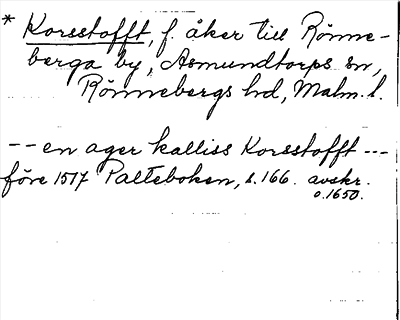 * Korsstofft, f. åker till Rönne-
berga by, Asmundtorps sn,
Rönnebergs hd, Malm. l.
-- en ager kalliss Korsstofft ---
före 1517 Palteboken, s. 166. avskr.
o. 1650.